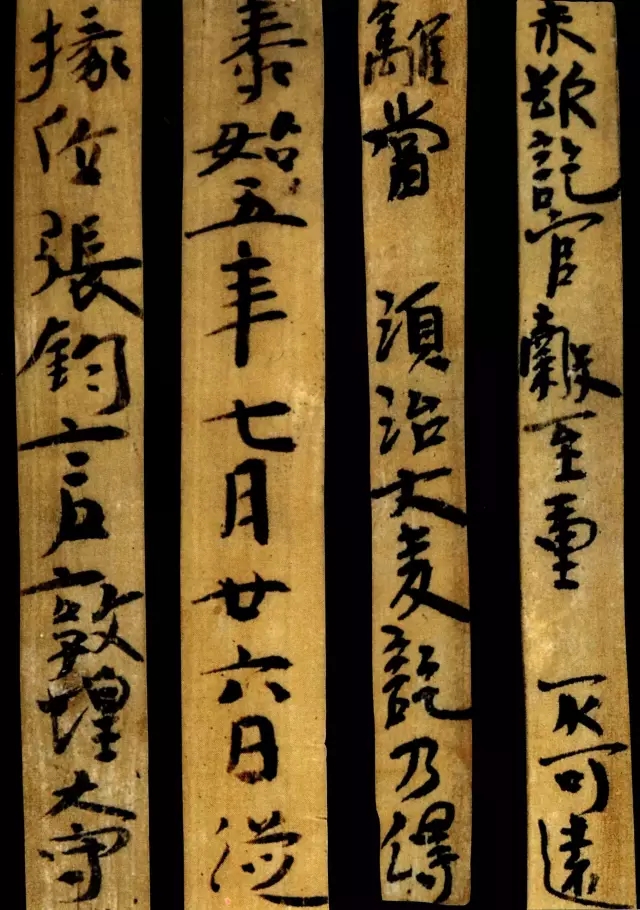 未欲訖官穀至重不可遠
離當須治大麦訖乃得
泰始五年七月廿六日從
掾位張鈞言敦煌大守